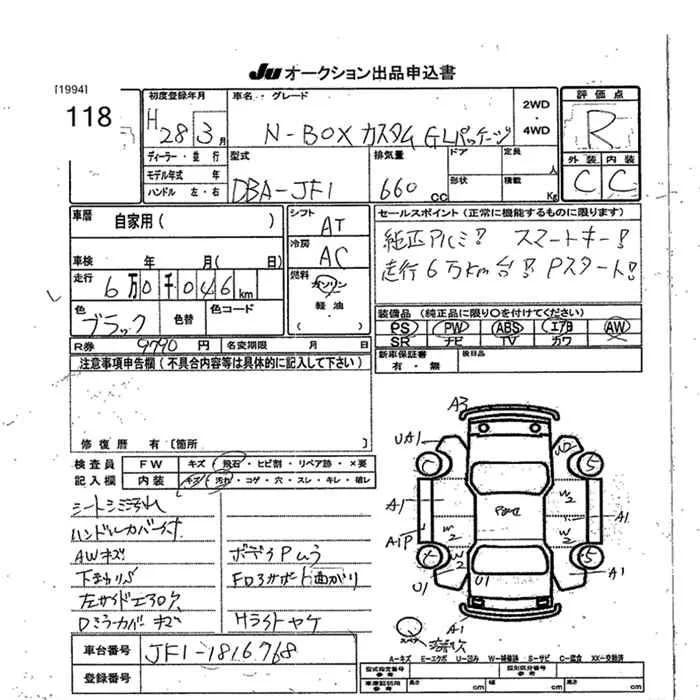 Ju オークション出品申込書
[1994]
118
初度登録年月
H 28 3 月
車名・グレード
N-BOX カスタム GLパッケージ
2WD
4WD
評価点
R
外装 内装
C C
ディーラー・並行
モデル年式 年
ハンドル 左・右
型式
DBA-JF1
排気量
660 cc
ドア
形状
定員 人
積載 Kg
車歴 自家用( )
シフト
AT
車検 年 月( 日)
冷房
AC
走行
6万0千046km
燃料
ガソリン
軽油
色
ブラック
色替
色コード
セールスポイント(正常に機能するものに限ります)
純正アルミ! スマートキー!
走行6万km台! Pスタート!
装備品(純正品に限り○を付けてください)
PS PW ABS エアB AW
SR ナビ TV カワ
R券 9790 円 名変期限 月 日
新車保証書
有・無
後日品
注意事項申告欄(不具合内容等は具体的に記入して下さい)
修復歴 有〔箇所 〕
検査員
記入欄
FW キズ・飛石・ヒビ割・リペア跡・×要
内装 キズ・汚れ・コゲ・穴・スレ・キレ・破レ
シートシミ汚れ
ハンドルカバー付
AWキズ
ボデラPムラ
下まわりS
FD3サポート曲がり
Dミラーカバーキズ
Hライトヤケ
A3
UA1
W2
5
A1
W2
W2
A1
A1P
W2
W2
5
U1
U1
A1
A-1
A-キズ E-エクボ U-凹み W-補修跡 S-サビ C-腐食 XX-交換済
車台番号 JF1-1816768
登録番号
型式指定番号
参考
類別区分番号
参考
車庫証明用
参考
長さ cm
幅 cm
高さ cm